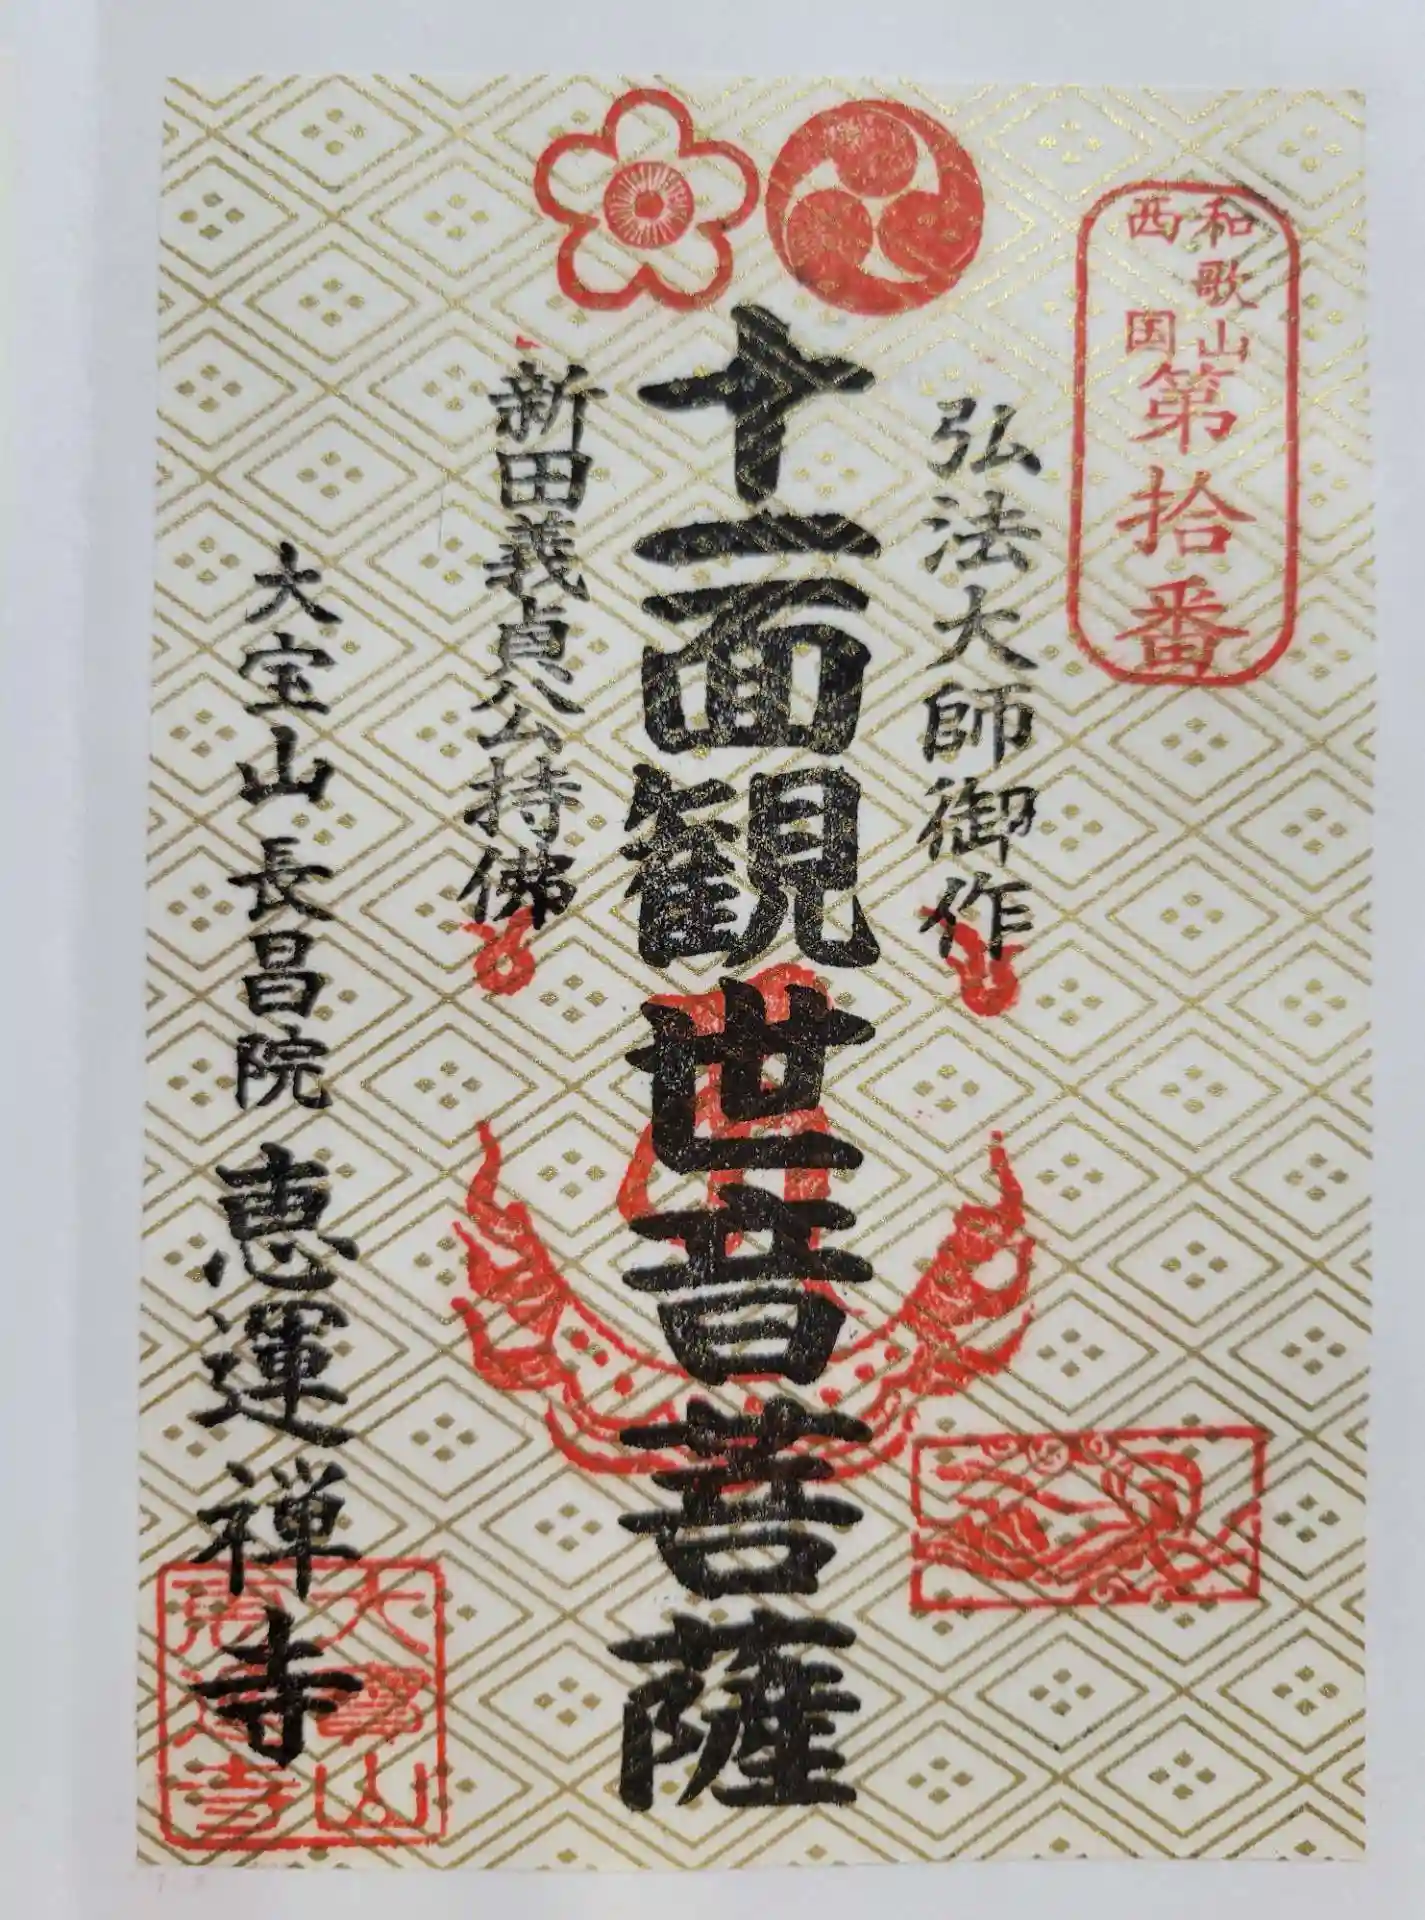 和歌山
西国
第拾番
弘法大師御作
十一面観世音菩薩
新田義貞公持佛
大宝山長昌院恵運禅寺
大寶山
恵運寺